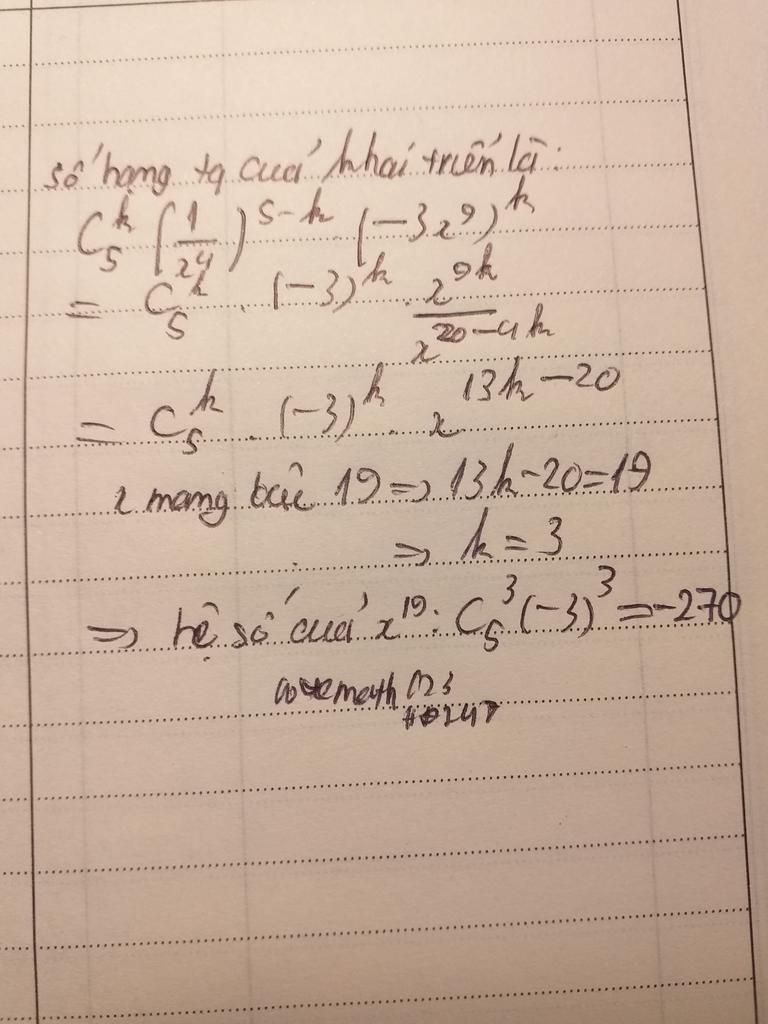 số hạng tq cuả khai triển là:
C₅ᵏ (1/x⁴)⁵⁻ᵏ . (−3x⁹)ᵏ
= C₅ᵏ . (−3)ᵏ . x⁹ᵏ/x²⁰⁻⁴ᵏ
= C₅ᵏ . (−3)ᵏ . x¹³ᵏ⁻²⁰
x mang bậc 19 => 13k−20=19
=> k = 3
=> hệ số cuả x¹⁹: C₅³(−3)³ = −270